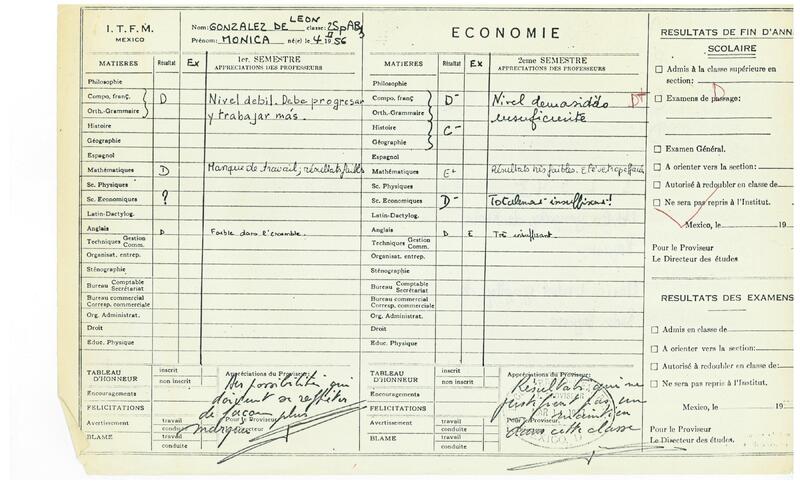 I.T.F.M.
MEXICO
Nom: GONZALEZ DE LEON classe: 2SpAB3
Prénom: MONICA né(e) le 4 II 1956
ECONOMIE
MATIERES Résultat Ex 1er. SEMESTRE
APPRECIATIONS DES PROFESSEURS
Philosophie
Compo. franç. D Nivel debil. Debe progresar
Orth.-Grammaire y trabajar más.
Histoire
Géographie
Espagnol
Mathématiques D Manque de travail, résultats faibles
Sc. Physiques
Sc. Economiques ?
Latin-Dactylog.
Anglais D Faible dans l'ensemble.
Techniques Gestion
Comm.
Organisat. entrep.
Sténographie
Bureau Comptable
Secrétariat
Bureau commercial
Corresp. commerciale
Org. Administrat.
Droit
Educ. Physique
TABLEAU D'HONNEUR inscrit
non inscrit
Encouragements
FELICITATIONS
Avertissement travail
conduite
BLAME travail
conduite
Appréciations du Proviseur:
possibilités qui
doivent se refléter
de façon plus
Pour le Proviseur
marquée
MATIERES Résultat Ex 2eme. SEMESTRE
APPRECIATIONS DES PROFESSEURS
Philosophie
Compo. franç. D- Nivel demasiado D+
Orth.-Grammaire insuficiente
Histoire C-
Géographie
Espagnol
Mathématiques E+ Résultats très faibles.
Sc. Physiques
Sc. Economiques D- Totalement insuffisant!
Latin-Dactylog.
Anglais D E Très insuffisant.
Techniques Gestion
Comm.
Organisat. entrep.
Sténographie
Bureau Comptable
Secrétariat
Bureau commercial
Corresp. commerciale
Org. Administrat.
Droit
Educ. Physique
TABLEAU D'HONNEUR inscrit
non inscrit
Encouragements
FELICITATIONS
Avertissement travail
conduite
BLAME travail
conduite
Appréciations du Proviseur:
Résultats qui ne
justifient pas un
maintien
Pour le Proviseur
dans cette classe
RESULTATS DE FIN D'ANN
SCOLAIRE
Admis à la classe supérieure en
section:
Examens de passage:
Examen Général.
A orienter vers la section:
Autorisé à redoubler en classe de
Ne sera pas repris à l'Institut.
Mexico, le 19
Pour le Proviseur
Le Directeur des études
RESULTATS DES EXAMENS
Admis en classe de
A orienter vers la section:
Autorisé à redoubler en classe de
Ne sera pas repris à l'Institut.
Mexico, le 19
Pour le Proviseur
Le Directeur des études.